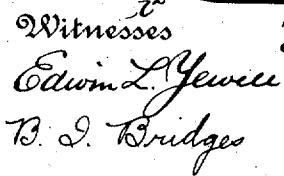 Witnesses
Edwin L. Yewell
B. I. Bridges